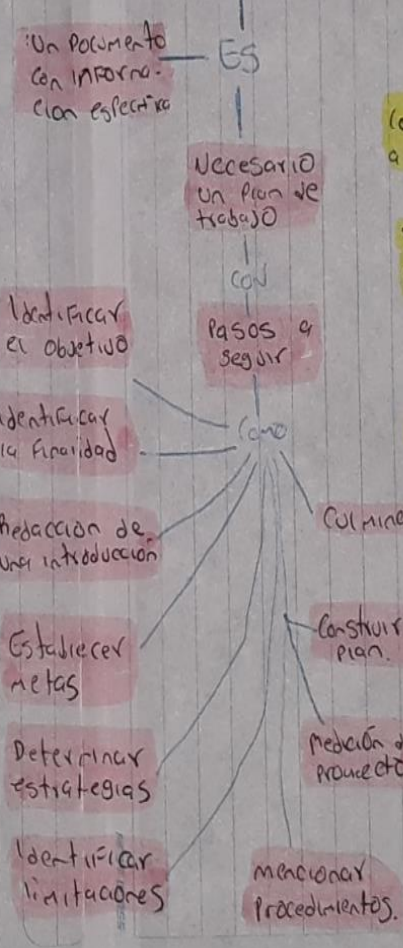 Un Documento
con informa-
cion especifica
ES
Necesario
un plan de
trabajo
CON
Pasos a
seguir
Como
Identificar
el objetivo
Identificar
la finalidad
Redaccion de
una introducción
Establecer
metas
Determinar
estrategias
Identificar
limitaciones
Culmina
Construir
Plan.
Medición d
proyecto
mencionar
Procedimientos.